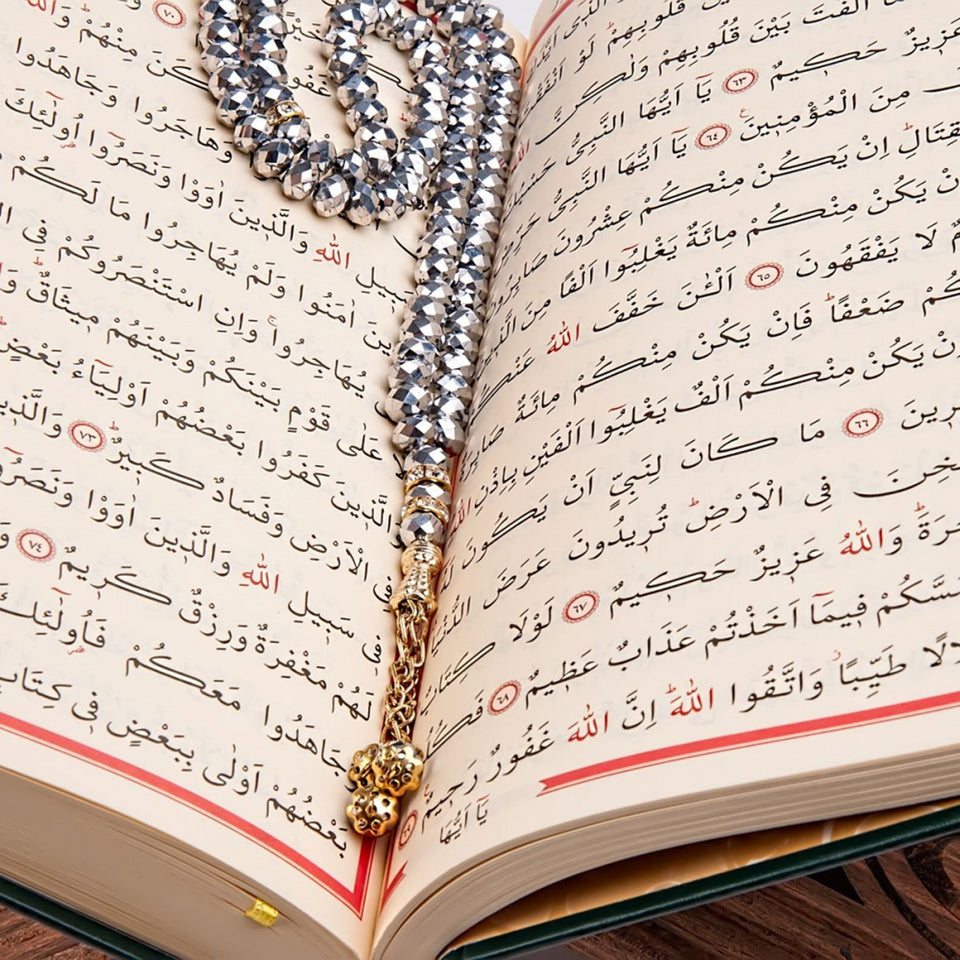 قُلُوبِهِمْ لَوْ اَنْفَقْتَ
اَلَّفْتَ بَيْنَ قُلُوبِهِمْ وَلٰكِنَّ
عَزٖيزٌ حَكٖيمٌ ٦٣ يَٓا اَيُّهَا النَّبِىُّ حَسْبُكَ
مِنَ الْمُؤْمِنٖينَ ٦٤ يَٓا اَيُّهَا النَّبِىُّ حَرِّضِ
الْقِتَالِ اِنْ يَكُنْ مِنْكُمْ عِشْرُونَ صَابِرُونَ
يَكُنْ مِنْكُمْ مِائَةٌ يَغْلِبُٓوا اَلْفًا مِنَ الَّذٖينَ
لَا يَفْقَهُونَ ٦٥ اَلْـٰٔنَ خَفَّفَ اللّٰهُ عَنْكُمْ
ضَعْفًا فَاِنْ يَكُنْ مِنْكُمْ مِائَةٌ صَابِرَةٌ
يَكُنْ مِنْكُمْ اَلْفٌ يَغْلِبُٓوا اَلْفَيْنِ بِاِذْنِ اللّٰهِ
٦٦ مَا كَانَ لِنَبِىٍّ اَنْ يَكُونَ لَهُٓ
فِى الْاَرْضِ تُرٖيدُونَ عَرَضَ الدُّنْيَا
وَاللّٰهُ عَزٖيزٌ حَكٖيمٌ ٦٧ لَوْلَا كِتَابٌ
فٖيمَٓا اَخَذْتُمْ عَذَابٌ عَظٖيمٌ ٦٨ فَكُلُوا
طَيِّبًا وَاتَّقُوا اللّٰهَ اِنَّ اللّٰهَ غَفُورٌ رَحٖيمٌ ٦٩
يَٓا اَيُّهَا
٧٠
مِنْهُمْ
وَهَاجَرُوا وَجَاهَدُوا
سَبٖيلِ اللّٰهِ وَالَّذٖينَ اٰوَوْا وَنَصَرُٓوا اُو۬لٰٓئِكَ
اٰمَنُوا وَلَمْ يُهَاجِرُوا مَا لَكُمْ
يُهَاجِرُوا وَاِنِ اسْتَنْصَرُوكُمْ فِى
عَلٰى قَوْمٍ بَيْنَكُمْ وَبَيْنَهُمْ مٖيثَاقٌ
الَّذٖينَ كَفَرُوا بَعْضُهُمْ اَوْلِيَٓاءُ بَعْضٍ
فِى الْاَرْضِ وَفَسَادٌ كَبٖيرٌ ٧٣ وَالَّذٖينَ
فٖى سَبٖيلِ اللّٰهِ وَالَّذٖينَ اٰوَوْا وَنَصَرُٓوا
لَهُمْ مَغْفِرَةٌ وَرِزْقٌ كَرٖيمٌ ٧٤
وَجَاهَدُوا مَعَكُمْ فَاُو۬لٰٓئِكَ
بَعْضُهُمْ اَوْلٰى بِبَعْضٍ فٖى كِتَابِ